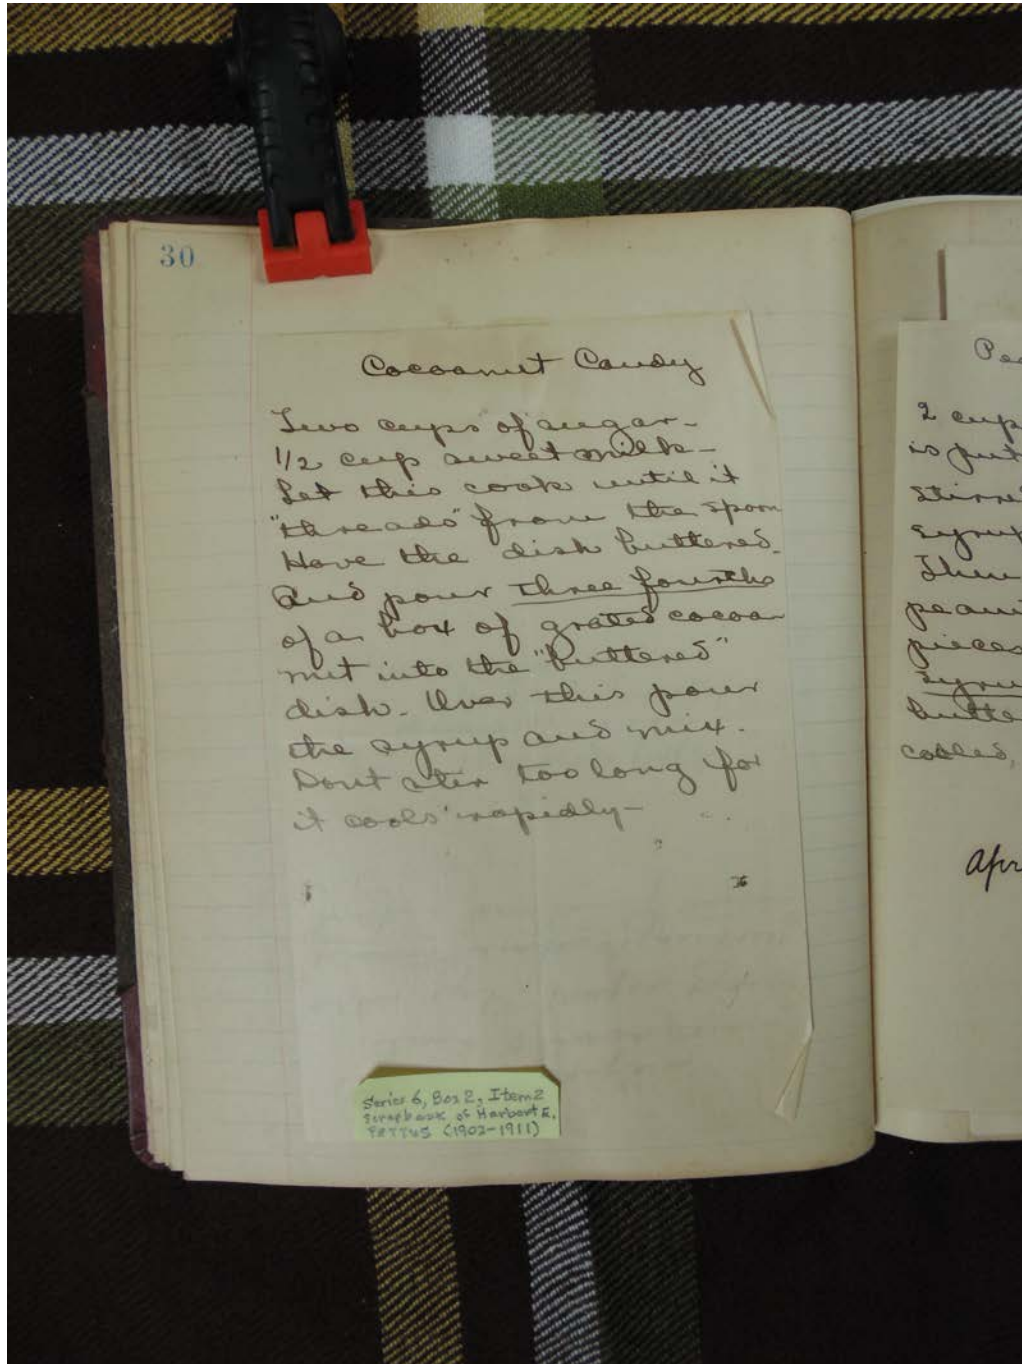 30
Cocoanut Candy
Two cups of sugar-
1/2 cup sweet milk-
Let this cook until it
"threads" from the spoon
Have the dish buttered-
And pour three fourths
of a box of grated cocoa
nut into the "buttered"
dish. Over this pour
the syrup and mix.
Dont ster too long for
it cools rapidly-
Series 6, Box 2, Item 2
Scrapbook of Harbert E.
PETTUS (1902-1911)
2 cup
is put
stirre
syrup
Then
pieces
syru
butte
cooled,
Apr